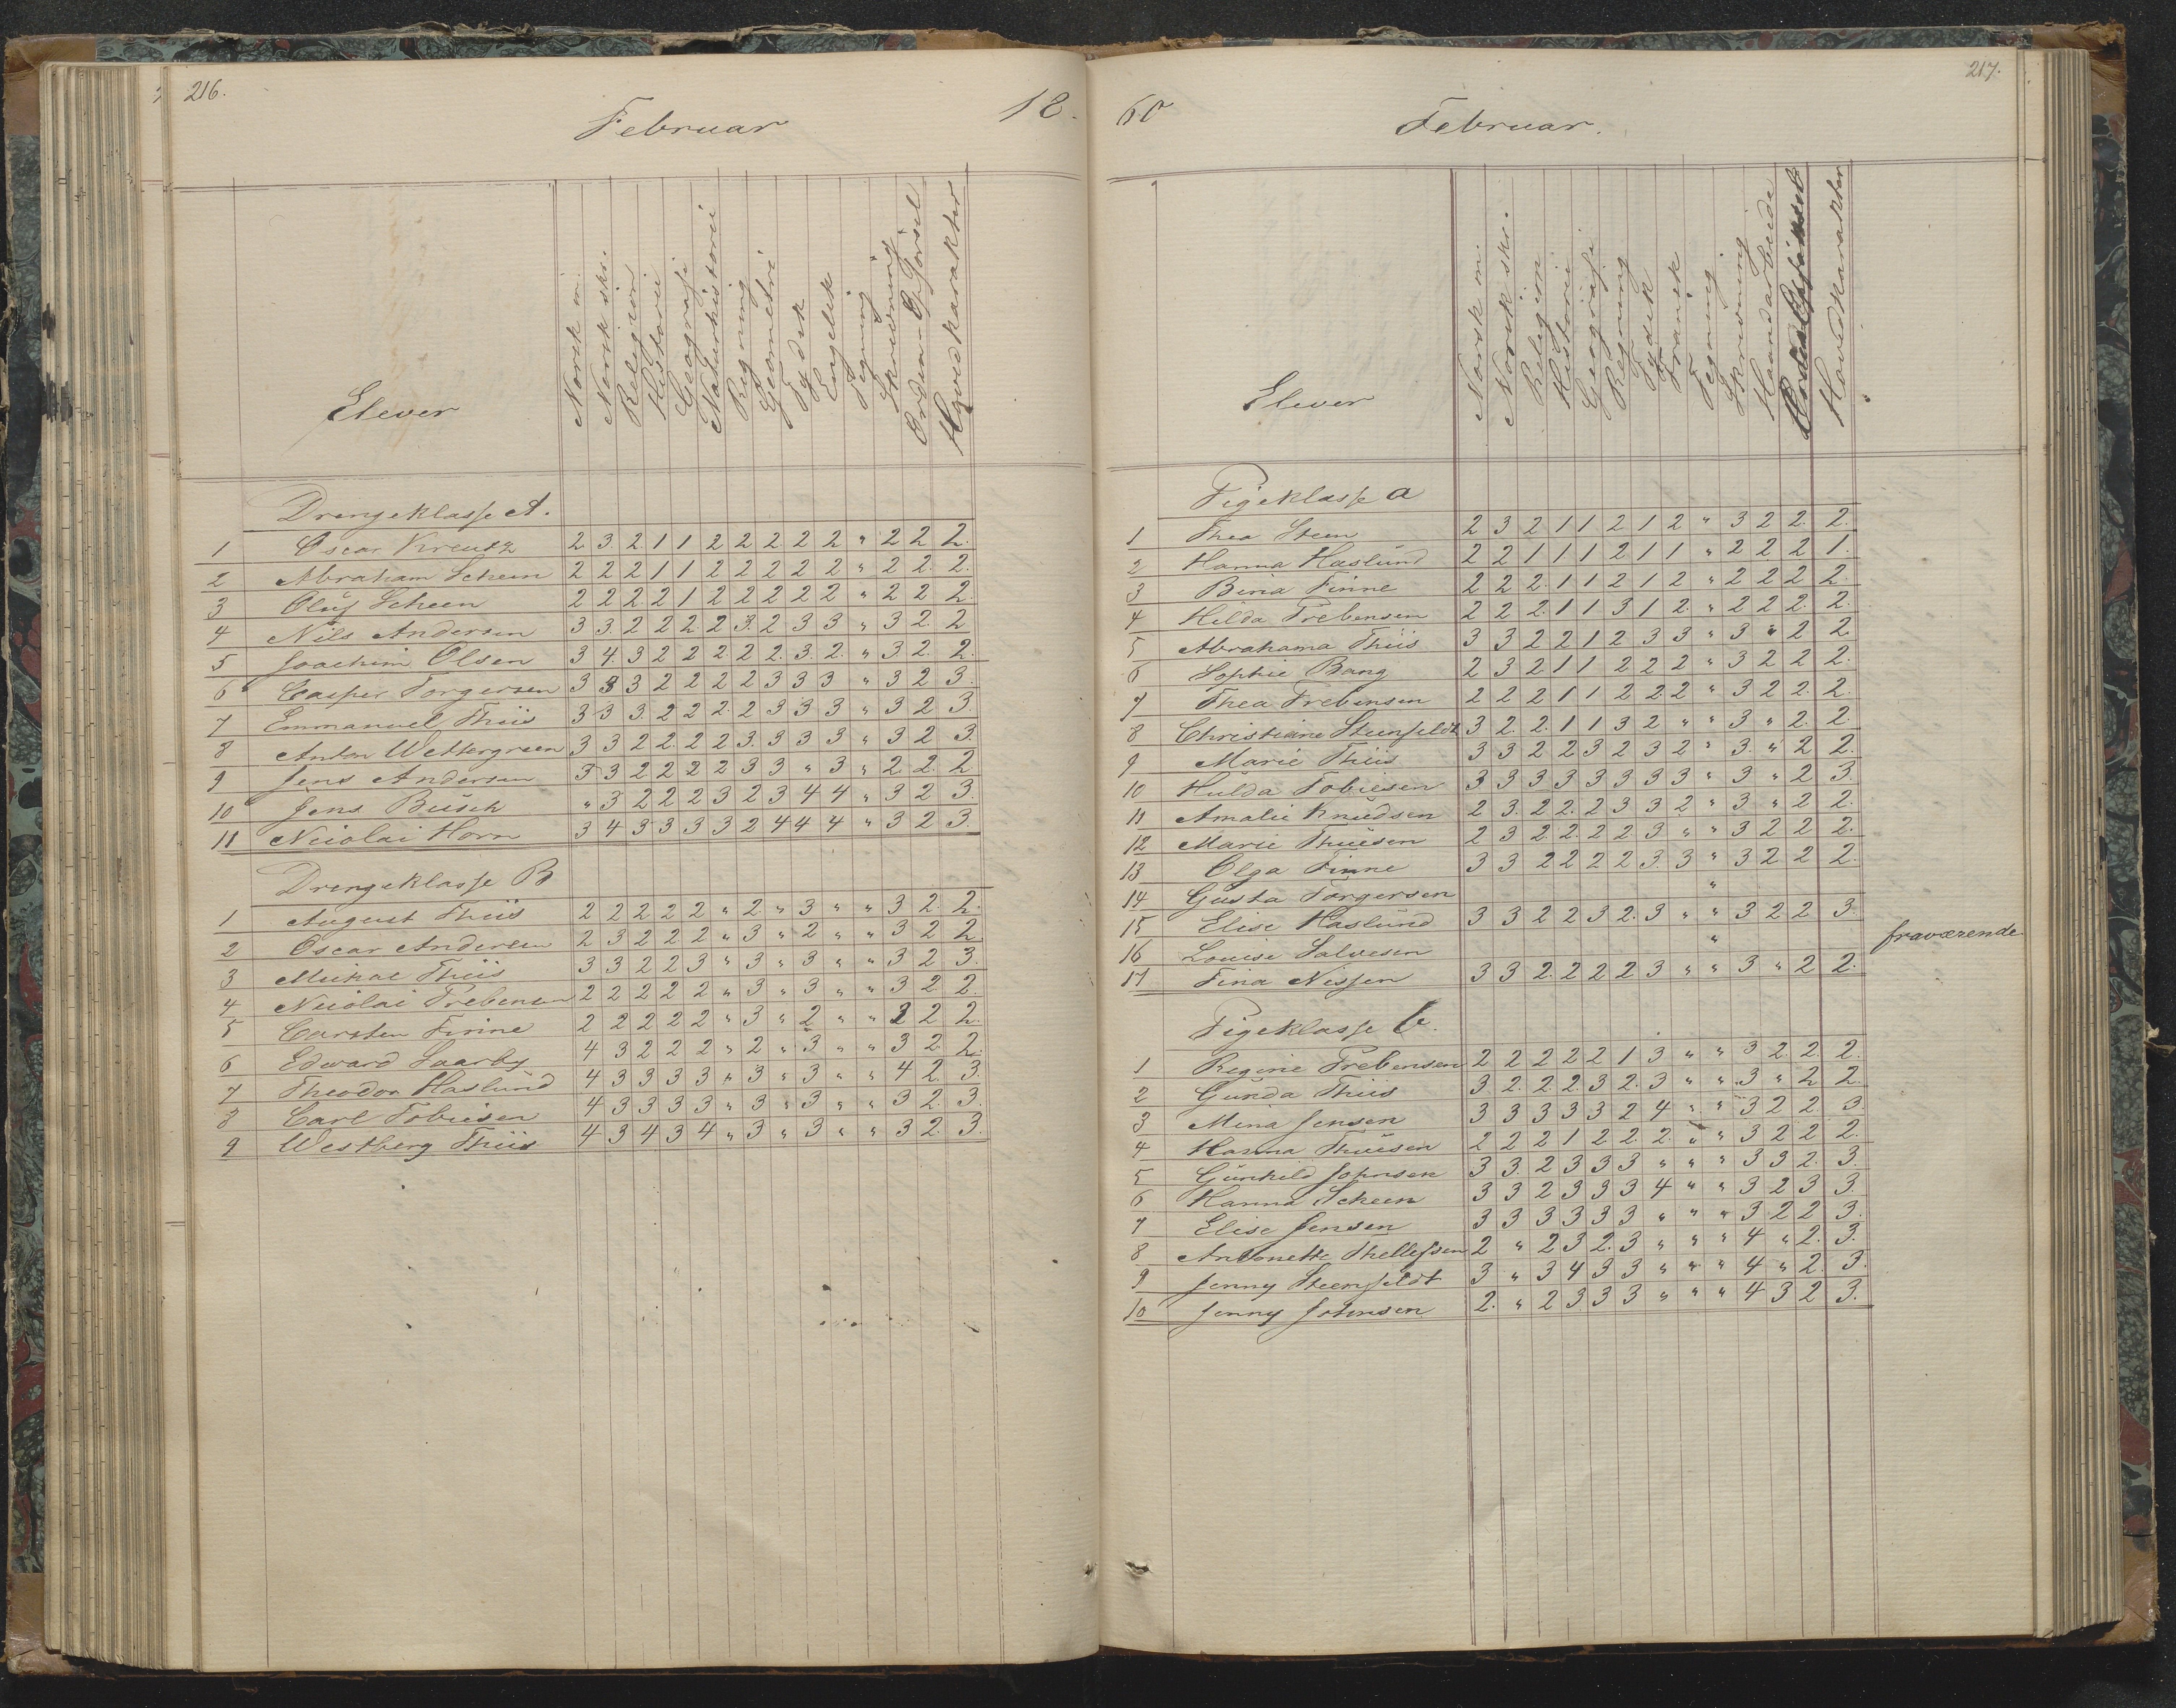 216.
Februar
18.
Elever
Norsk m.
Norsk skr.
Religion
Historie
Geografi
Naturhistorie
Regning
Geometri
Tydsk
Engelsk
Tegning
Skrivning
Orden Opførsel
Hovedkarakter
Drengeklasse A.
1 Oscar Kreutz 2 3 2 1 1 2 2 2 2 2 " 2 2 2.
2 Abraham Scheen 2 2 2 1 1 2 2 2 2 2 " 2 2. 2.
3 Oluf Scheen 2 2 2 2 1 2 2 2 2 2 " 2 2 2.
4 Nils Andersen 3 3. 2 2 2 2 3. 2 3 3 " 3 2. 2
5 Joachim Olsen 3 4. 3 2 2 2 2 2. 3. 2. " 3 2. 2.
6 Casper Torgersen 3 3 3 2 2 2 2 3 3 3 " 3 2 3.
7 Emmanuel Thiis 3 3 3. 2 2 2. 2 3 3 3 " 3 2 3.
8 Anton Wettergreen 3 3 2 2. 2 2 3. 3 3 3 " 3 2 3.
9 Jens Andersen 3 3 2 2 2 2 3 3 " 3 " 2 2. 2
10 Jens Busch " 3 2 2 2 3 2 3 4 4 " 3 2 3.
11 Nicolai Horn 3 4 3 3 3 3 2 4 4 4 " 3 2 3.
Drengeklasse B
1 August Thiis 2 2 2 2 2 " 2 " 3 " " 3 2. 2.
2 Oscar Andersen 2 3 2 2 2 " 3 " 2 " " 3 2 2
3 Mickal Thiis 3 3 2 2 3 " 3 " 3 " " 3 2 3.
4 Nicolai Trebensen 2 2 2 2 2 " 3 " 3 " " 3 2 2.
5 Carsten Finne 2 2 2 2 2 " 3 " 2 " " 2 2 2.
6 Edvard Saarby 4 3 2 2 2 " 2 " 3 " " 3 2 2.
7 Theodor Haslund 4 3 3 3 3 " 3 " 3 " " 4 2. 3.
8 Carl Tobiesen 4 3 3 3 3 " 3 " 3 " " 3 2. 3.
9 Westberg Thiis 4 3 4 3 4 " 3 " 3 " " 3 2. 3.
217.
60
Februar.
Elever
Norsk m.
Norsk skr.
Religion
Historie
Geografi
Regning
Tydsk
Fransk
Tegning
Skrivning
Haandarbeide
Hovedkarakter
Pigeklasse a
1 Thea Steen 2 3 2 1 1 2 1 2 " 3 2 2. 2.
2 Hanna Haslund 2 2 1 1 1 2 1 1 " 2 2 2 1.
3 Bina Finne 2 2 2. 1 1 2 1 2 " 2 2 2 2.
4 Hilda Trebensen 2 2 2. 1 1 3 1 2. " 2 2 2. 2.
5 Abrahama Thiis 3 3 2 2 1 2 3 3 " 3 " 2 2.
6 Sophie Bang 2 3 2 1 1 2 2 2 " 3 2 2 2.
7 Thea Trebensen 2 2 2 1 1 2 2. 2 " 3 2 2. 2.
8 Christiane Steenfeldt 3 2. 2. 1 1 3 2 " " 3 " 2. 2.
9 Marie Thiis 3 3 2 2 3 2 3 2 " 3. " 2 2.
10 Hulda Tobiesen 3 3 3 3 3 3 3 3 " 3 " 2 3.
11 Amalie Knudsen 2 3. 2 2. 2 3 3 2 " 3 " 2 2.
12 Marie Thuesen 2 3 2. 2. 2 2. 3 " " 3 2 2 2.
13 Olga Finne 3 3 2 2 2 2 3. 3 " 3 2 2 2.
14 Gusta Torgersen "
15 Elise Haslund 3 3 2 2 3 2. 3 " " 3 2 2 3.
16 Louise Salvesen " fraværende
17 Fina Nissen 3 3 2. 2 2 2 3 " " 3 " 2 2.
Pigeklasse b.
1 Regine Trebensen 2 2 2 2 2 1 3 " " 3 2. 2. 2.
2 Gunda Thiis 3 2. 2. 2. 3 2. 3 " " 3 " 2 2
3 Mina Jensen 3 3 3 3 3 2 4 " " 3 2 2. 3.
4 Hanna Thuesen 2 2 2 1 2 2. 2. " " 3 2 2 2.
5 Gunhild Johnsen 3 3. 2 3 3 3 " " " 3 3 2. 3.
6 Hanna Scheen 3 3 2 3 3 3 4 " " 3 2 3 3.
7 Elise Jensen 3 3 3 3 3 3 " " " 3 2 2 3.
8 Antonette Thellefsen 2 " 2 3 2. 3 " " " 4 " 2. 3.
9 Jenny Steenfeldt 3 " 3 4 3 3 " " " 4 " 2. 3.
10 Jenny Johnsen 2. " 2 3 3 3 " " " 4 3 2 3.